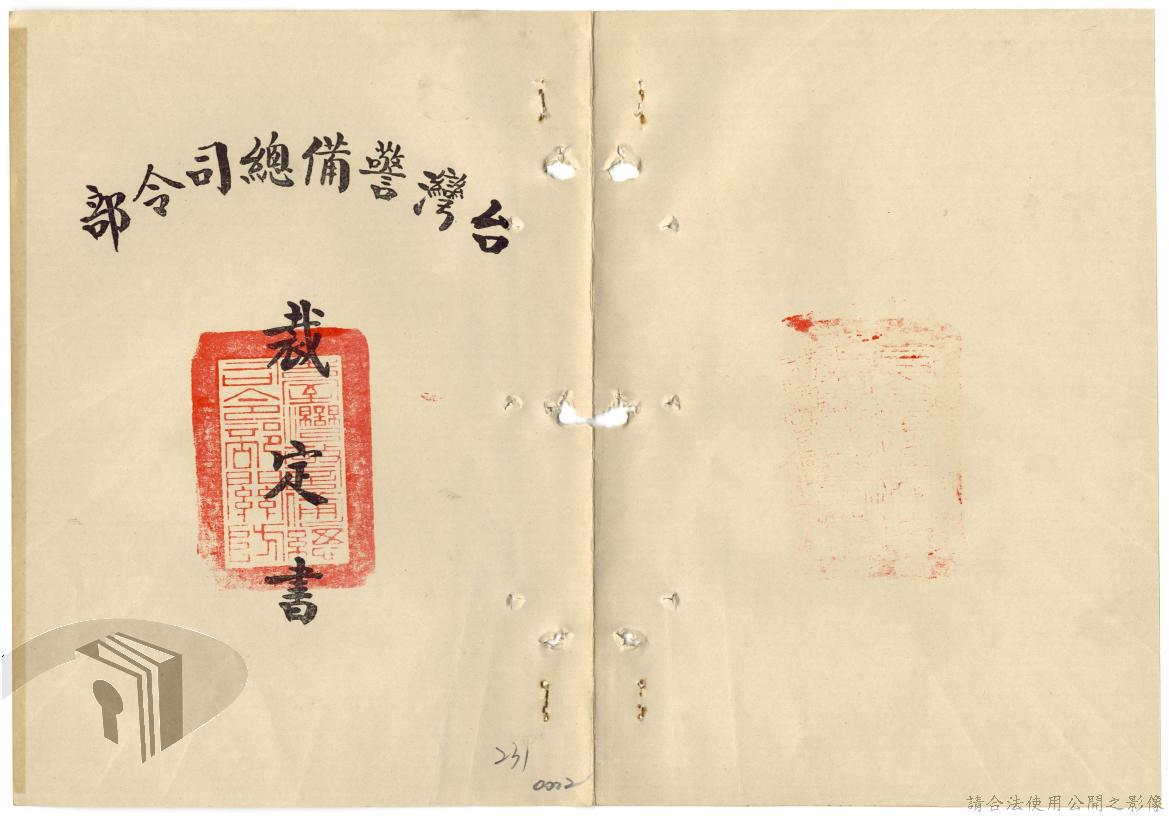 台灣警備總司令部
裁定書
臺灣警備總
司令部關防
231
0002
請合法使用公開之影像